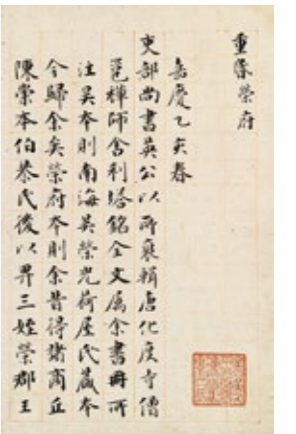 重答榮府
嘉慶乙亥春
吏部尚書英公以所裒輯唐化度寺僧
邕禪師舍利塔銘全文屬余書冊所
注吳本則南海吳榮光荷屋氏藏本
今歸余矣榮府本則余昔得諸商丘
陳崇本伯恭氏後以畀三姪榮郡王